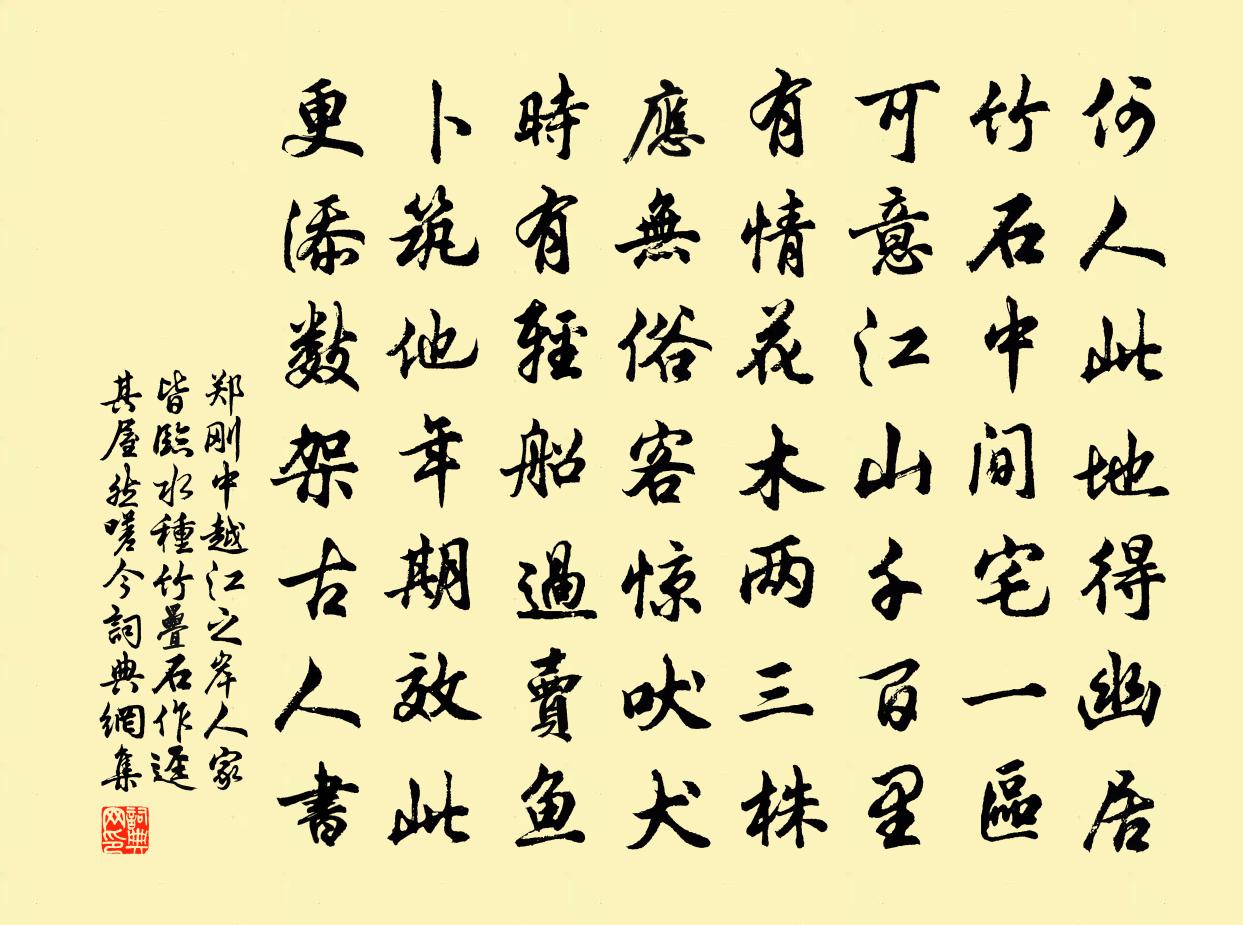 何人此地得幽居
竹石中间宅一區
可意江山千百里
有情花木两三株
應無俗客惊吠犬
時有輕船過賣魚
卜筑他年期效此
更添数架古人書
郑刚中越江之岸人家
皆臨水種竹疊石作逕
其屋然嗟今詞典網集
詞典
网印